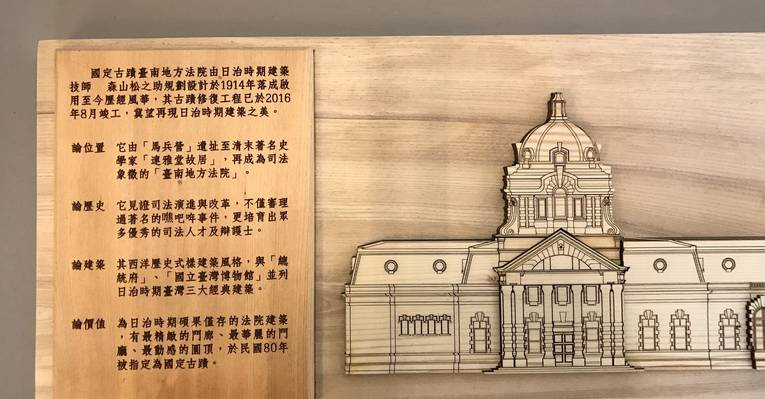 國定古蹟臺南地方法院由日治時期建築
技師 森山松之助規劃設計於1914年落成啟
用至今歷經風華，其古蹟修復工程已於2016
年8月竣工，冀望再現日治時期建築之美。
論位置 它由「馬兵營」遺址至清末著名史
學家「連雅堂故居」，再成為司法
象徵的「臺南地方法院」。
論歷史 它見證司法演進與改革，不僅審理
過著名的噍吧哖事件，更培育出眾
多優秀的司法人才及辯護士。
論建築 其西洋歷史式樣建築風格，與「總
統府」、「國立臺灣博物館」並列
日治時期臺灣三大經典建築。
論價值 為日治時期碩果僅存的法院建築
，有最精緻的門廊、最華麗的門
廳、最動感的圓頂，於民國80年
被指定為國定古蹟。